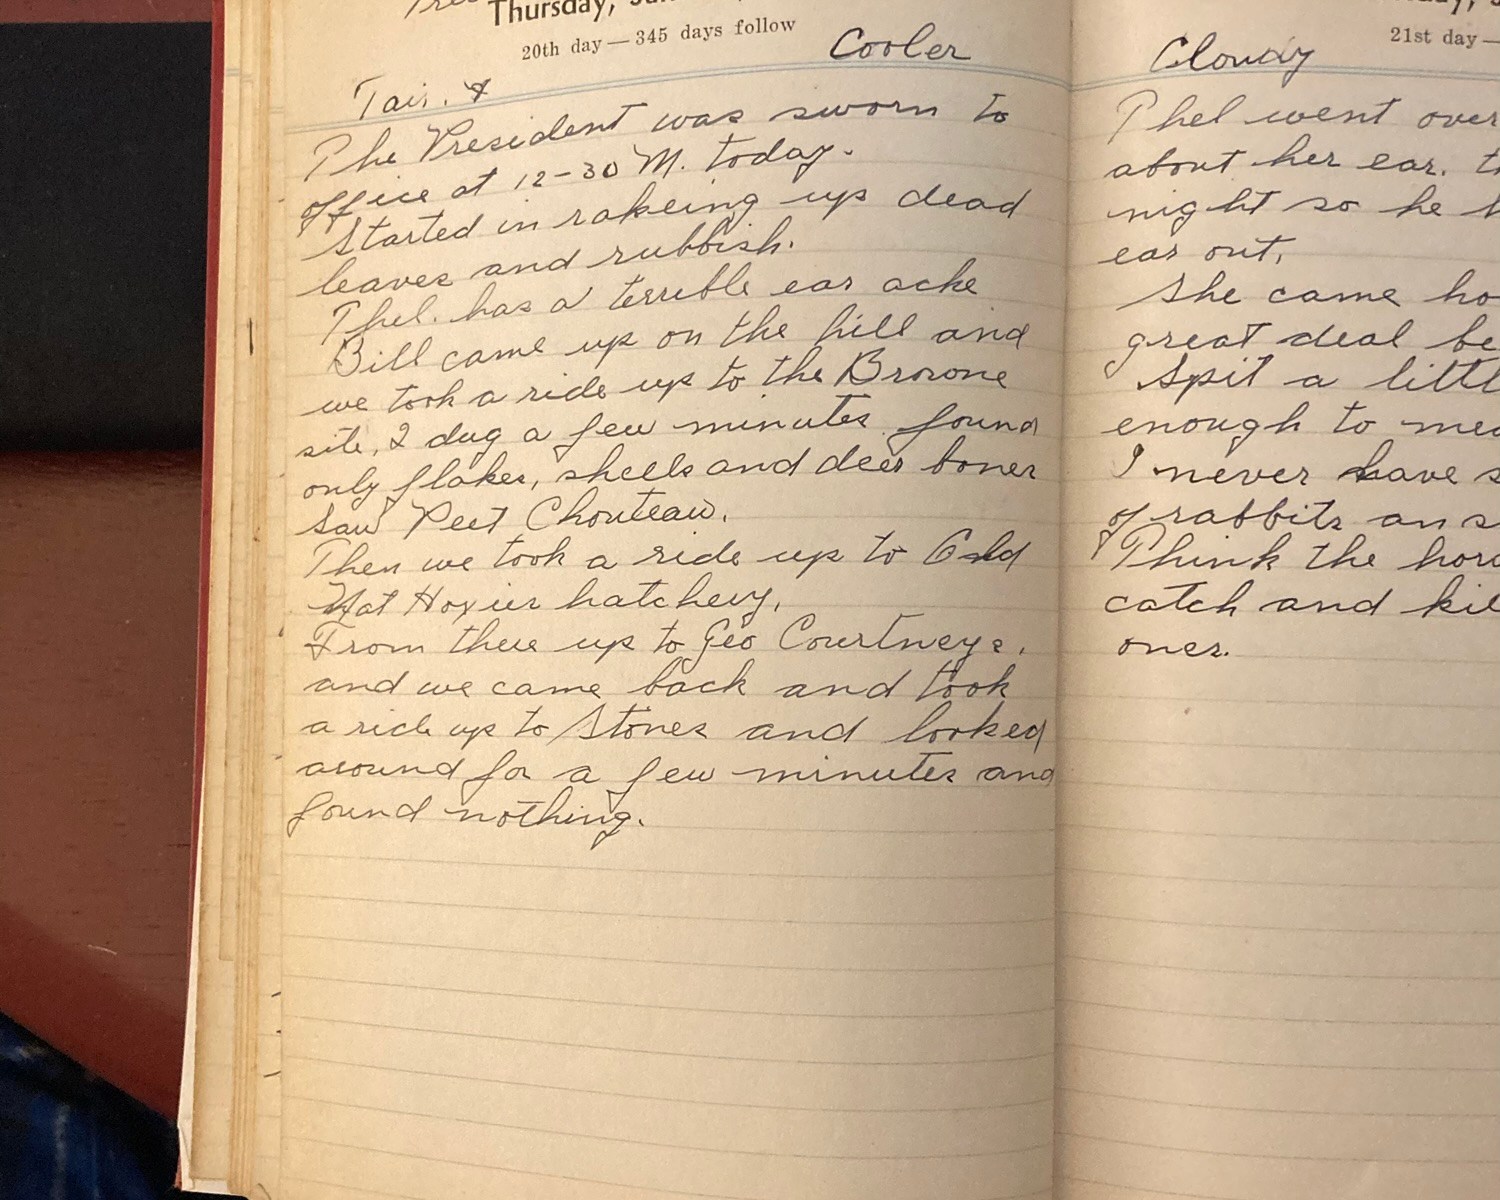 Thursday,
20th day — 345 days follow
Cooler
Fair. &
The President was sworn to
office at 12-30 M. today.
Started in rakeing up dead
leaves and rubbish.
Thel. has a terrible ear ache
Bill came up on the hill and
we took a ride up to the Browne
site, I dug a few minutes found
only flakes, shells and deer bones
saw Peet Chouteau.
Then we took a ride up to Old
Nat Hoxier hatchery,
From there up to Geo Courtneys.
and we came back and took
a ride up to Stones and looked
around for a few minutes and
found nothing.
21st day —
Cloudy
Thel went over
about her ear.
night so he
ear out,
She came
great deal
Spit a
enough to
I never have
of rabbits an
Think the
catch and
ones.